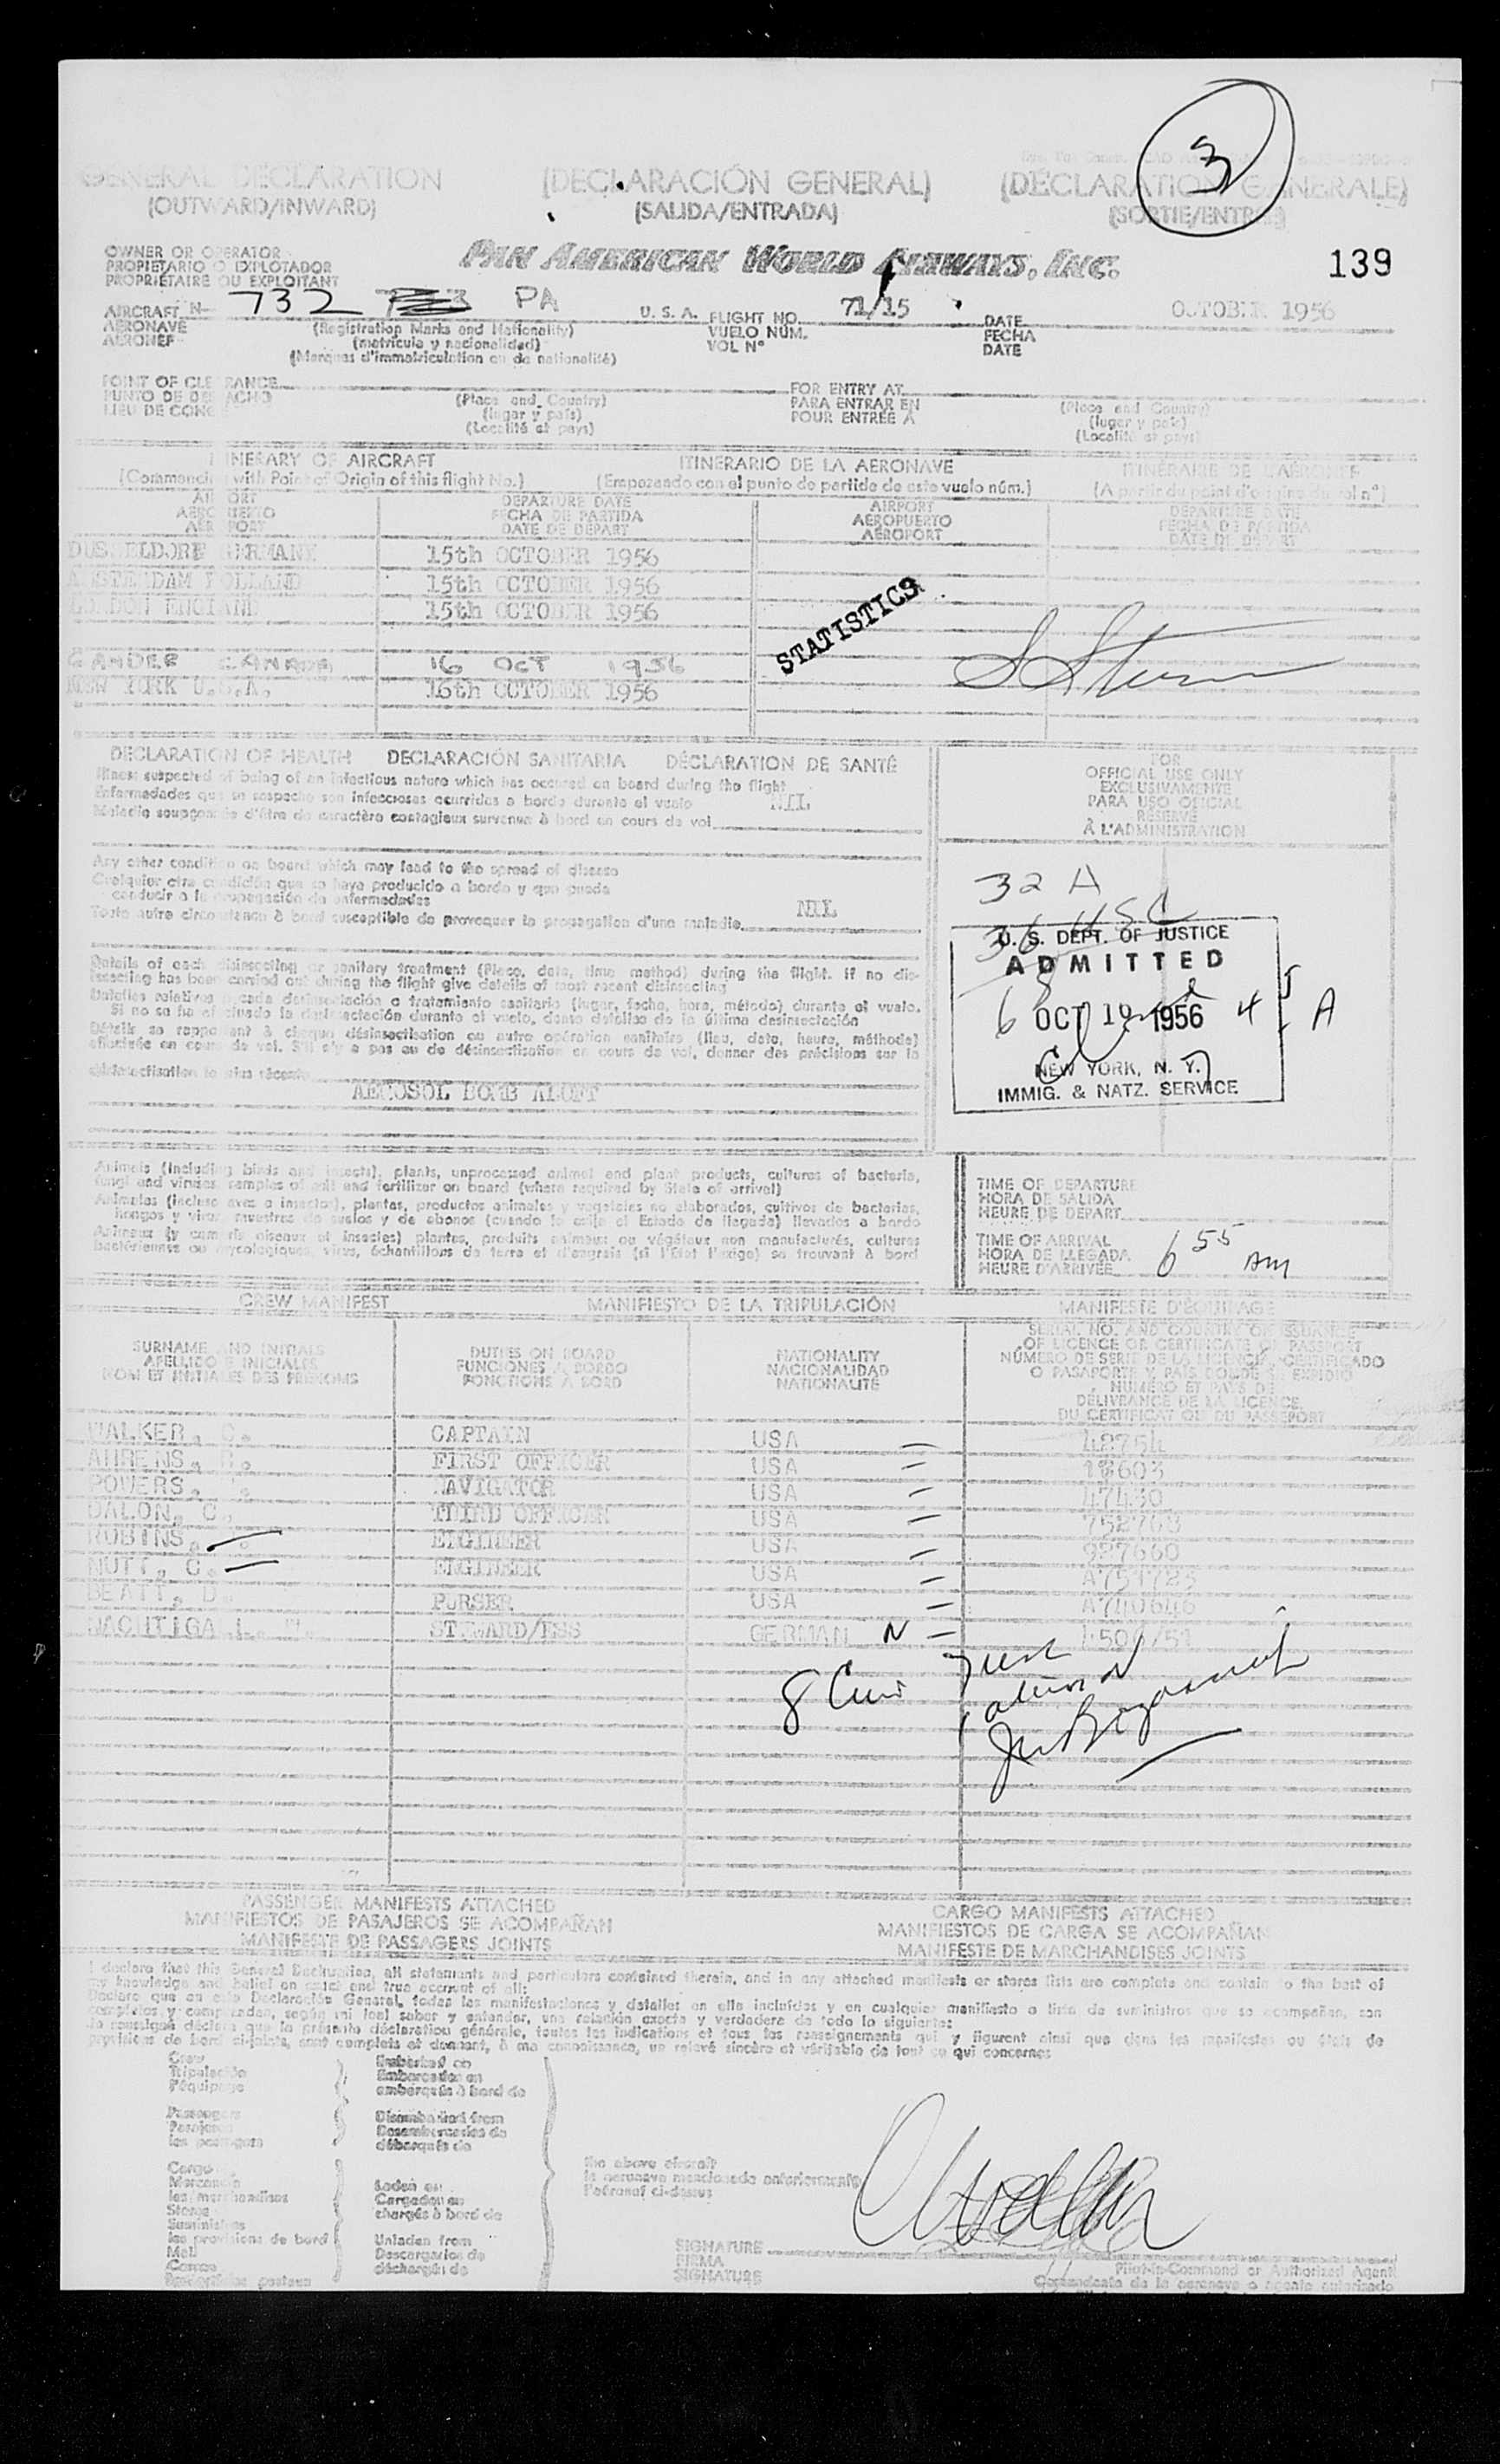 3
GENERAL DECLARATION (DECLARACIÓN GENERAL) (DÉCLARATION GÉNÉRALE)
(OUTWARD/INWARD) (SALIDA/ENTRADA) (SORTIE/ENTRÉE)
OWNER OR OPERATOR
PROPIETARIO O EXPLOTADOR
PROPRIÉTAIRE OU EXPLOITANT
PAN AMERICAN WORLD AIRWAYS, INC.
139
AIRCRAFT N- 732 PA U. S. A. FLIGHT NO. 71/15 DATE OCTOBER 1956
AERONAVE (Registration Marks and Nationality) VUELO NÚM. FECHA
AÉRONEF (matrícula y nacionalidad) VOL Nº DATE
(Marques d'immatriculation ou de nationalité)
POINT OF CLEARANCE (Place and Country) FOR ENTRY AT (Place and Country)
PUNTO DE DESPACHO (lugar y país) PARA ENTRAR EN (lugar y país)
LIEU DE CONGÉ (Localité et pays) POUR ENTRÉE À (Localité et pays)
ITINERARY OF AIRCRAFT ITINERARIO DE LA AERONAVE ITINÉRAIRE DE L'AÉRONEF
(Commencing with Point of Origin of this flight No.) (Empezando con el punto de partida de este vuelo núm.) (A partir du point d'origine du vol nº)
AIRPORT DEPARTURE DATE AIRPORT DEPARTURE DATE
AEROPUERTO FECHA DE PARTIDA AEROPUERTO FECHA DE PARTIDA
AÉROPORT DATE DE DÉPART AÉROPORT DATE DE DÉPART
DUSSELDORF GERMANY 15th OCTOBER 1956
AMSTERDAM HOLLAND 15th OCTOBER 1956
LONDON ENGLAND 15th OCTOBER 1956
STATISTICS
GANDER CANADA 16 OCT 1956
NEW YORK U.S.A. 16th OCTOBER 1956
DECLARATION OF HEALTH DECLARACIÓN SANITARIA DÉCLARATION DE SANTÉ
Illness suspected of being of an infectious nature which has occured on board during the flight
Enfermedades que se sospecha son infecciosas ocurridas a bordo durante el vuelo NIL
Maladie soupçonnée d'être de caractère contagieux survenue à bord en cours de vol
FOR
OFFICIAL USE ONLY
EXCLUSIVAMENTE
PARA USO OFICIAL
RÉSERVÉ
À L'ADMINISTRATION
Any other condition on board which may lead to the spread of disease
Cualquier otra condición que se haya producido a bordo y que pueda
conducir a la propagación de enfermedades
Toute autre circonstance à bord susceptible de provoquer la propagation d'une maladie NIL
32 A
36 USC
U. S. DEPT. OF JUSTICE
ADMITTED
OCT 1956
NEW YORK, N. Y.
IMMIG. & NATZ. SERVICE
Details of each disinsecting or sanitary treatment (Place, date, time method) during the flight. If no disinsecting has been carried out during the flight give details of most recent disinsecting
Detalles relativos a cada desinsectación o tratamiento sanitario (lugar, fecha, hora, método) durante el vuelo.
Si no se ha efectuado la desinsectación durante el vuelo, dense detalles de la última desinsectación
Détails se rapportant à chaque désinsectisation ou autre opération sanitaire (lieu, date, heure, méthode)
effectuée en cours de vol. S'il n'y a pas eu de désinsectisation en cours de vol, donner des précisions sur la
désinsectisation la plus récente
AEROSOL BOMB ALOFT
Animals (including birds and insects), plants, unprocessed animal and plant products, cultures of bacteria,
fungi and viruses, samples of soil and fertilizer on board (where required by State of arrival)
Animales (incluso aves e insectos), plantas, productos animales y vegetales no elaborados, cultivos de bacterias,
hongos y virus, muestras de suelos y de abonos (cuando lo exija el Estado de llegada) llevados a bordo
Animaux (y compris oiseaux et insectes) plantes, produits animaux ou végétaux non manufacturés, cultures
bactériennes ou mycologiques, virus, échantillons de terre et d'engrais (si l'État l'exige) se trouvant à bord
TIME OF DEPARTURE
HORA DE SALIDA
HEURE DE DÉPART
TIME OF ARRIVAL
HORA DE LLEGADA
HEURE D'ARRIVÉE 6 55 AM
CREW MANIFEST MANIFIESTO DE LA TRIPULACIÓN MANIFESTE D'ÉQUIPAGE
SURNAME AND INITIALS DUTIES ON BOARD NATIONALITY
APELLIDO E INICIALES FUNCIONES A BORDO NACIONALIDAD
NOM ET INITIALES DES PRÉNOMS FONCTIONS À BORD NATIONALITÉ
SERIAL NO. AND COUNTRY OF ISSUANCE
OF LICENCE OR CERTIFICATE OR PASSPORT
NÚMERO DE SERIE DE LA LICENCIA, CERTIFICADO
O PASAPORTE Y PAÍS DONDE SE EXPIDIÓ
NUMÉRO ET PAYS DE
DÉLIVRANCE DE LA LICENCE,
DU CERTIFICAT OU DU PASSEPORT
WALKER, C. CAPTAIN USA 42754
AHRENS, FIRST OFFICER USA 18603
POWERS, NAVIGATOR USA 47430
DALON, C. THIRD OFFICER USA 752768
ROBINS, ENGINEER USA 927660
NUTT, C. ENGINEER USA A751723
BEATT, D. PURSER USA A740646
NACHTIGAL, STEWARD/ESS GERMAN N
8 Crew
PASSENGER MANIFESTS ATTACHED CARGO MANIFESTS ATTACHED
MANIFIESTOS DE PASAJEROS SE ACOMPAÑAN MANIFIESTOS DE CARGA SE ACOMPAÑAN
MANIFESTE DE PASSAGERS JOINTS MANIFESTE DE MARCHANDISES JOINTS
I declare that this General Declaration, all statements and particulars contained therein, and in any attached manifests or stores lists are complete and contain to the best of
my knowledge and belief an exact and true account of all:
Declaro que en esta Declaración General, todas las manifestaciones y detalles en ella incluidos y en cualquier manifiesto o lista de suministros que se acompañan, son
completos y comprenden, según mi leal saber y entender, una relación exacta y verdadera de todo lo siguiente:
Je soussigné déclare que la présente déclaration générale, toutes les indications et tous les renseignements qui y figurent ainsi que dans les manifestes ou états de
provisions de bord ci-joints, sont complets et donnent, à ma connaissance, un relevé sincère et véritable de tout ce qui concerne:
Crew Embarked on
Tripulación Embarcados en
l'équipage embarqués à bord de
Passengers Disembarked from
Pasajeros Desembarcados de
les passagers débarqués de
Cargo
Mercancía
les marchandises
Stores
Suministros
les provisions de bord
Mail
Correo
Laden on
Cargados en
chargés à bord de
Unladen from
Descargados de
déchargés de
the above aircraft
la aeronave mencionada anteriormente
l'aéronef ci-dessus
SIGNATURE
FIRMA
SIGNATURE
Pilot-in-Command or Authorized Agent
Comandante de la aeronave o agente autorizado